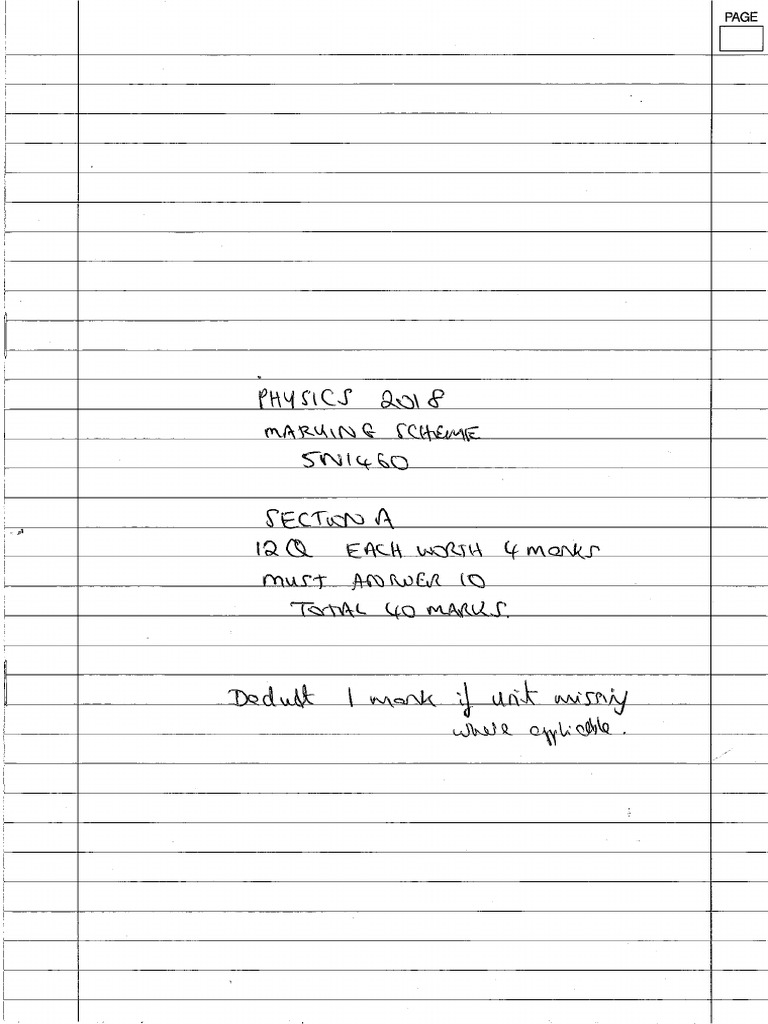 PAGE
PHYSICS 2018
MARKING SCHEME
5N1460
SECTION A
12 Q EACH WORTH 4 marks
MUST ANSWER 10
TOTAL 40 MARKS.
Deduct 1 mark if unit missing
where applicable.